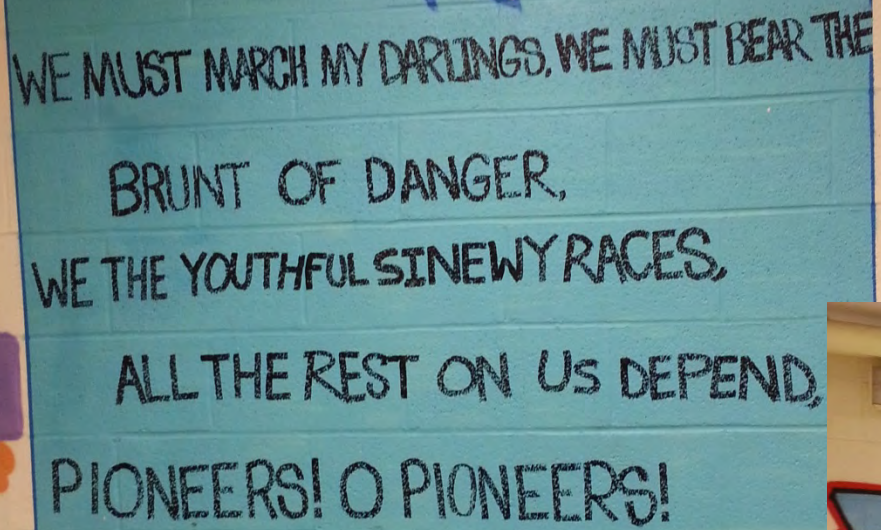 WE MUST MARCH MY DARLINGS, WE MUST BEAR THE
BRUNT OF DANGER,
WE THE YOUTHFUL SINEWY RACES,
ALL THE REST ON US DEPEND,
PIONEERS! O PIONEERS!